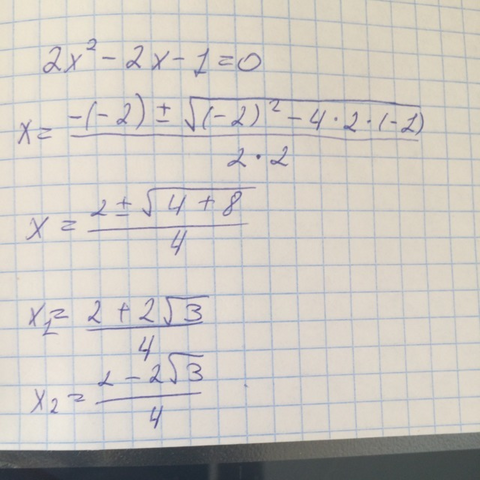 2x² - 2x - 1 = 0
x = (-(-2) ± √((-2)² - 4·2·(-1))) / (2·2)
x = (2 ± √(4 + 8)) / 4
x₁ = (2 + 2√3) / 4
x₂ = (2 - 2√3) / 4